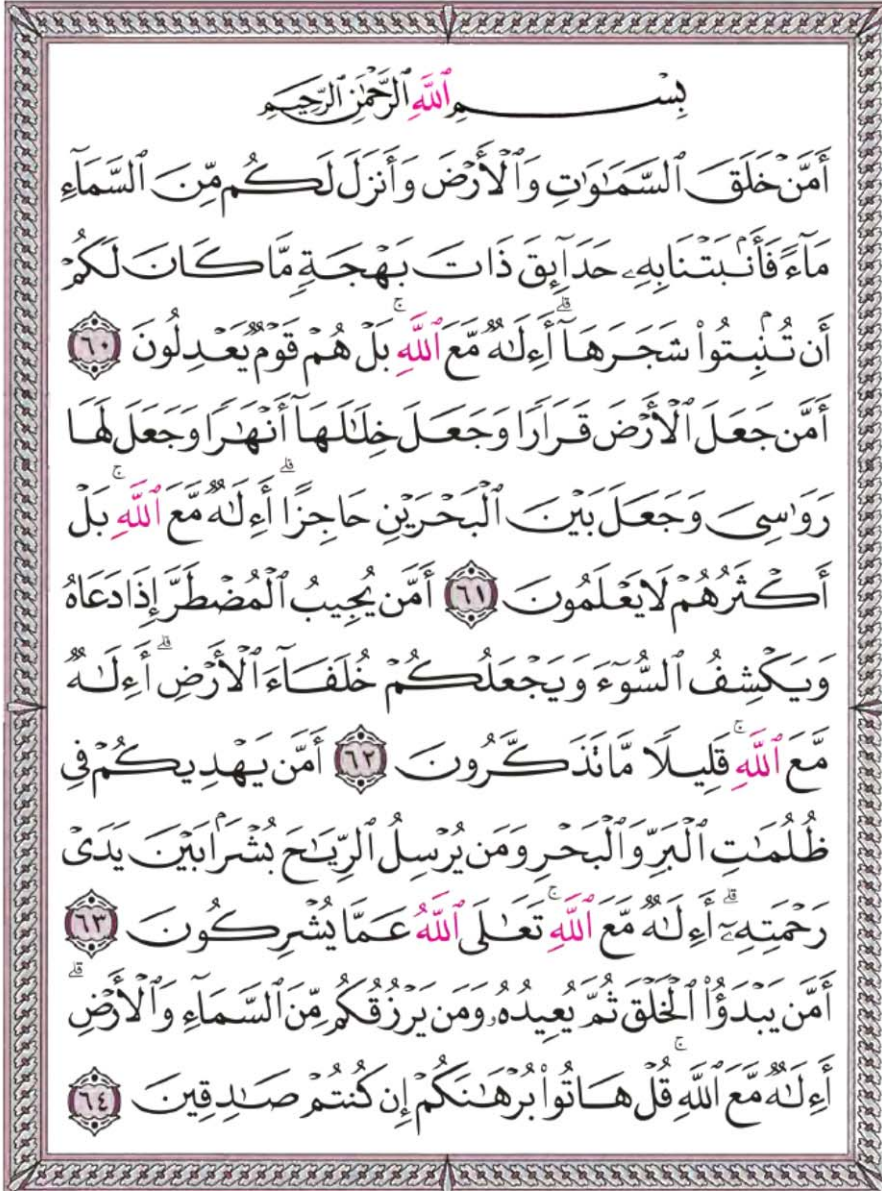 بِسْمِ ٱللَّهِ ٱلرَّحْمَٰنِ ٱلرَّحِيمِ
أَمَّنْ خَلَقَ ٱلسَّمَٰوَٰتِ وَٱلْأَرْضَ وَأَنزَلَ لَكُم مِّنَ ٱلسَّمَآءِ
مَآءً فَأَنۢبَتْنَا بِهِۦ حَدَآئِقَ ذَاتَ بَهْجَةٍ مَّا كَانَ لَكُمْ
أَن تُنۢبِتُوا۟ شَجَرَهَآ ۗ أَءِلَٰهٌ مَّعَ ٱللَّهِ ۚ بَلْ هُمْ قَوْمٌ يَعْدِلُونَ ٦٠
أَمَّن جَعَلَ ٱلْأَرْضَ قَرَارًا وَجَعَلَ خِلَٰلَهَآ أَنْهَٰرًا وَجَعَلَ لَهَا
رَوَٰسِىَ وَجَعَلَ بَيْنَ ٱلْبَحْرَيْنِ حَاجِزًا ۗ أَءِلَٰهٌ مَّعَ ٱللَّهِ ۚ بَلْ
أَكْثَرُهُمْ لَا يَعْلَمُونَ ٦١ أَمَّن يُجِيبُ ٱلْمُضْطَرَّ إِذَا دَعَاهُ
وَيَكْشِفُ ٱلسُّوٓءَ وَيَجْعَلُكُمْ خُلَفَآءَ ٱلْأَرْضِ ۗ أَءِلَٰهٌ
مَّعَ ٱللَّهِ ۚ قَلِيلًا مَّا تَذَكَّرُونَ ٦٢ أَمَّن يَهْدِيكُمْ فِى
ظُلُمَٰتِ ٱلْبَرِّ وَٱلْبَحْرِ وَمَن يُرْسِلُ ٱلرِّيَٰحَ بُشْرًۢا بَيْنَ يَدَىْ
رَحْمَتِهِۦٓ ۗ أَءِلَٰهٌ مَّعَ ٱللَّهِ ۚ تَعَٰلَى ٱللَّهُ عَمَّا يُشْرِكُونَ ٦٣
أَمَّن يَبْدَؤُا۟ ٱلْخَلْقَ ثُمَّ يُعِيدُهُۥ وَمَن يَرْزُقُكُم مِّنَ ٱلسَّمَآءِ وَٱلْأَرْضِ ۗ
أَءِلَٰهٌ مَّعَ ٱللَّهِ ۚ قُلْ هَاتُوا۟ بُرْهَٰنَكُمْ إِن كُنتُمْ صَٰدِقِينَ ٦٤